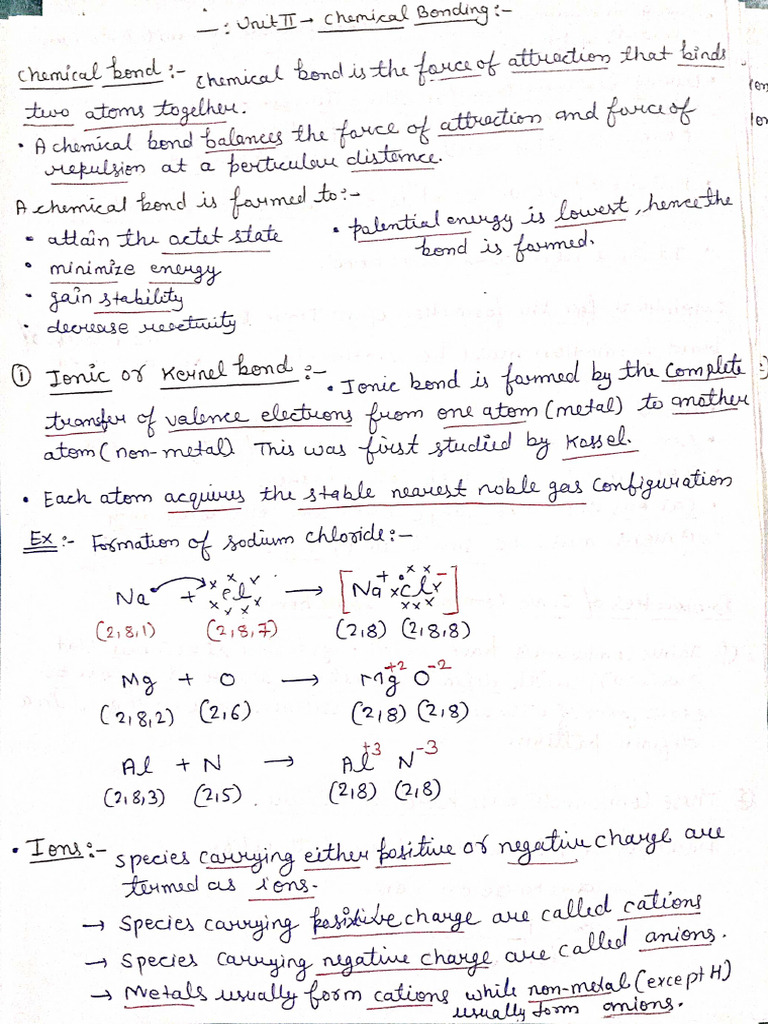 —: Unit II → Chemical Bonding:-
Chemical bond:- Chemical bond is the force of attraction that binds
two atoms together.
• A chemical bond balances the force of attraction and force of
repulsion at a perticular distance.
A chemical bond is formed to:-
• attain the octet state
• minimize energy
• gain stability
• decrease reactivity
• potential energy is lowest, hence the
bond is formed.
① Ionic or Kernel bond:- • Ionic bond is formed by the complete
transfer of valence electrons from one atom (metal) to another
atom (non-metal). This was first studied by Kossel.
• Each atom acquires the stable nearest noble gas configuration
Ex:- Formation of sodium chloride:-
Na + Cl → [Na⁺ Cl⁻]
(2,8,1) (2,8,7) (2,8) (2,8,8)
Mg + O → Mg⁺² O⁻²
(2,8,2) (2,6) (2,8) (2,8)
Al + N → Al⁺³ N⁻³
(2,8,3) (2,5) (2,8) (2,8)
• Ions:- Species carrying either positive or negative charge are
termed as ions.
→ Species carrying positive charge are called cations
→ Species carrying negative charge are called anions.
→ Metals usually form cations while non-metal (except H)
usually form anions.